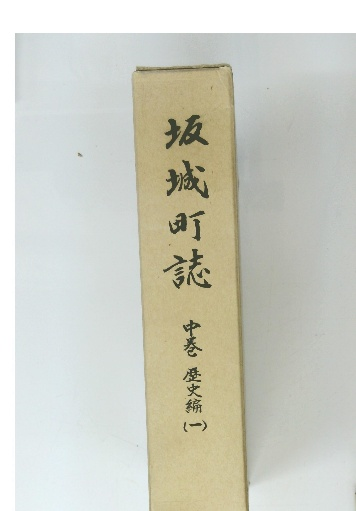 坂城町誌
中巻 歴史編(一)